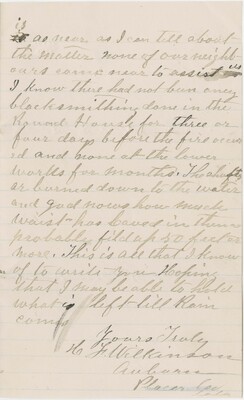 is
as near as I can tell about
the matter none of our neighb
ours come near to assist us
I know there had not bun aney
blacksmithing done in the
Round House for three or
four days before the fire
ed and none at the lower
works for months. The shaft
ar burned down to the water
and god nows how much
waist has caved in them
probably fild up 50 feet or
more. This is all that I know
of to write you Hoping
that I may be able to hold
what is left till Rain
comes
Yours Truly
H. F. Wilkinson
Auburn
Placer Co